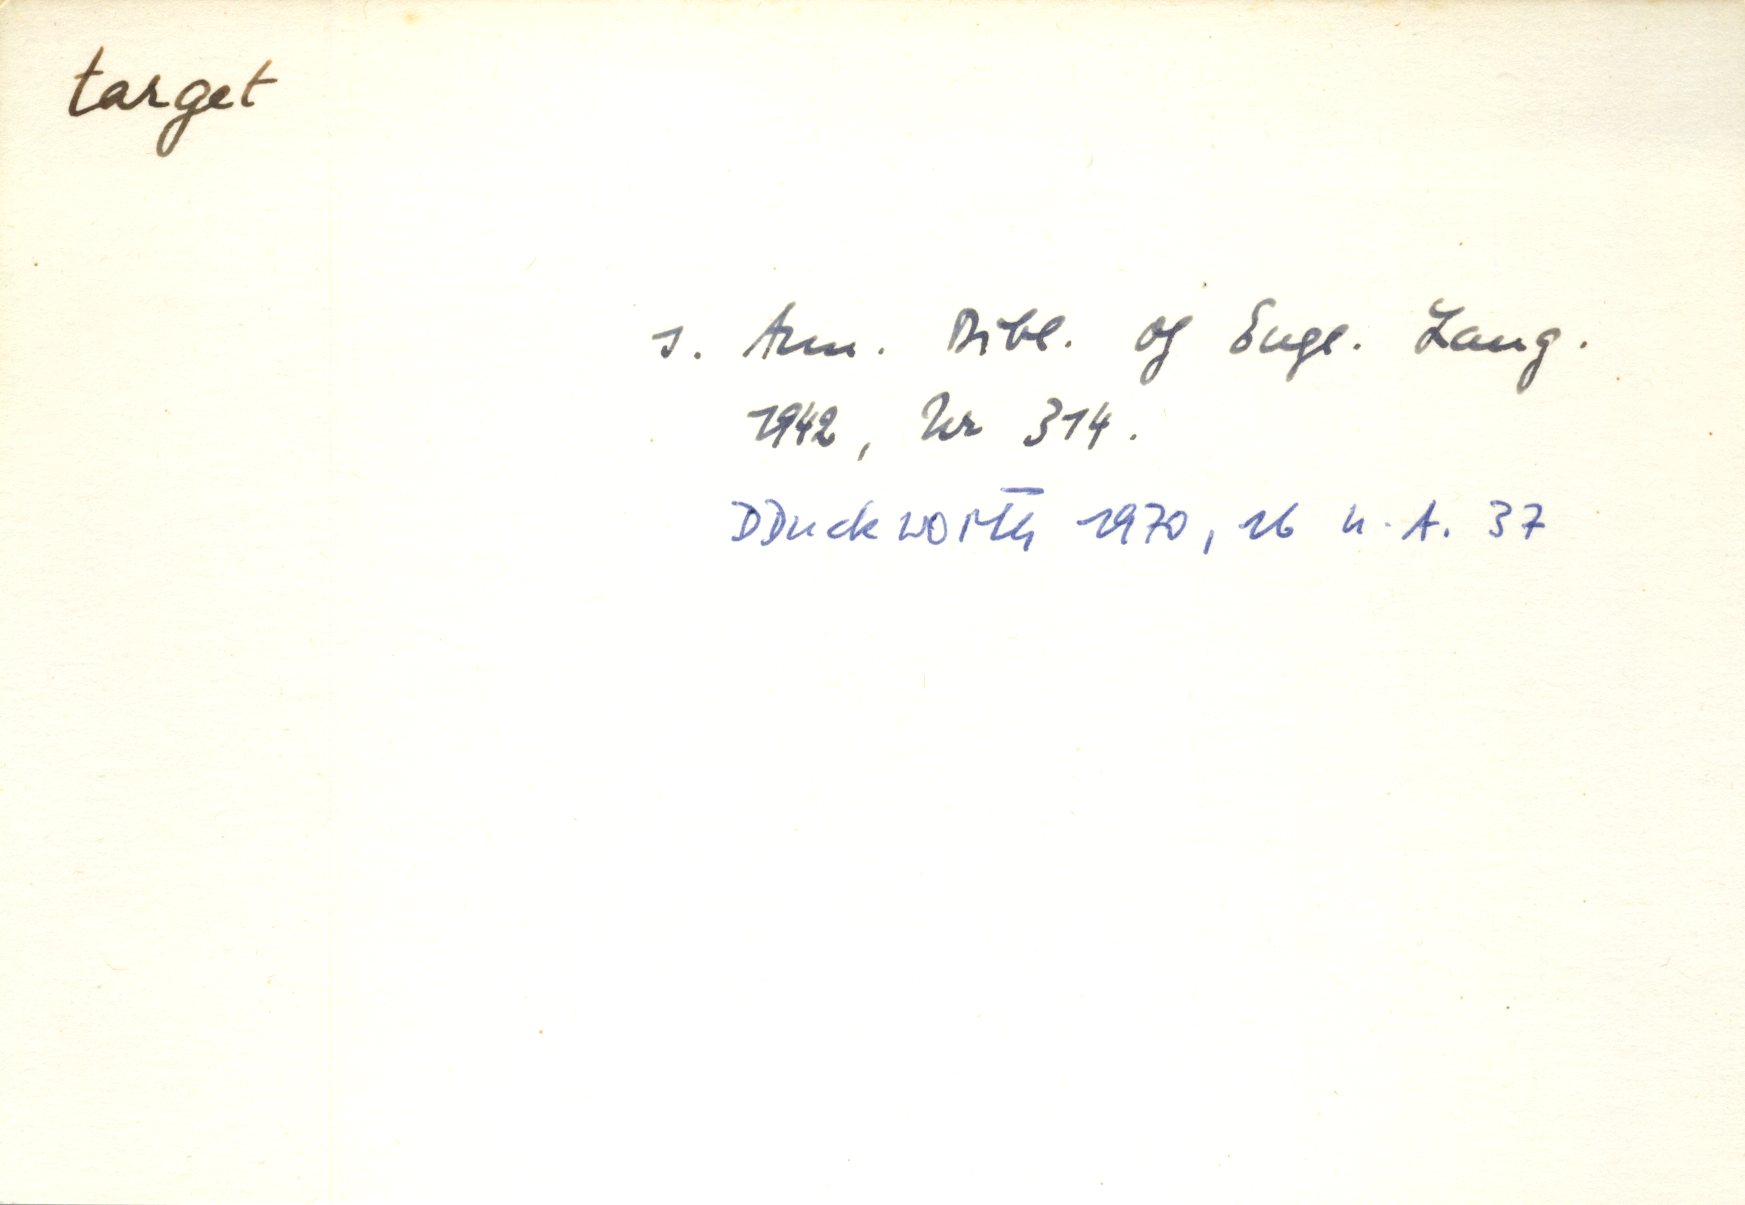 target
s. Ann. Bibl. of Engl. Lang.
1942, Nr 314.
DDuckworth 1970, 16 u. A. 37